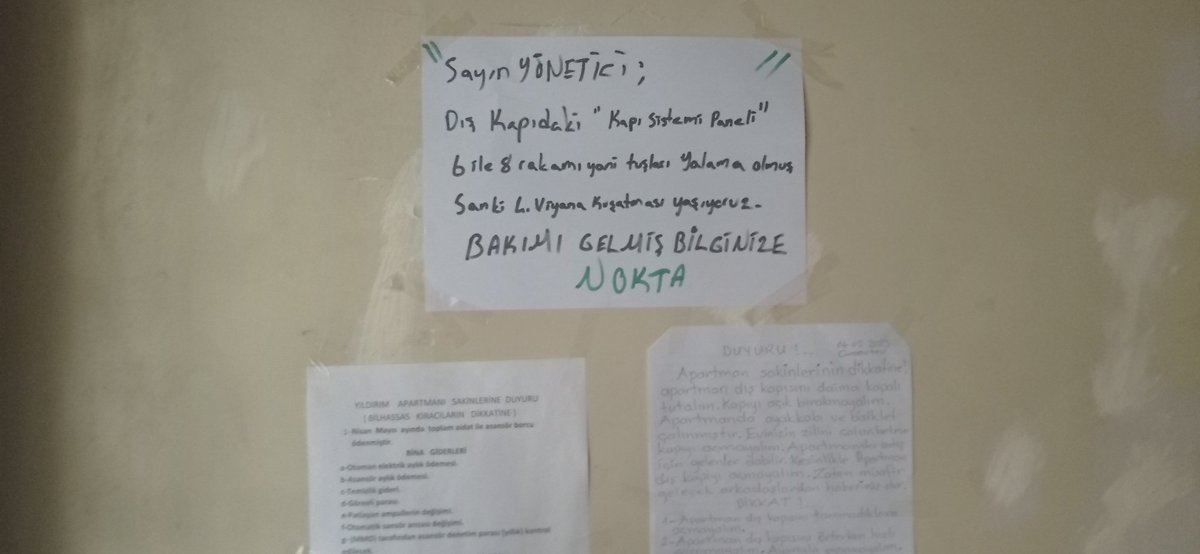 " Sayın YÖNETİCİ; "
Dış Kapıdaki "Kapı Sistemi Paneli"
6 ile 8 rakamı yani tuşları Yalama olmuş
Sanki L. Viyana Kuşatması yaşıyoruz.
BAKIMI GELMİŞ BİLGİNİZE
NOKTA
YILDIRIM APARTMANI SAKİNLERİNE DUYURU
( BİLHASSAS KİRACILARIN DİKKATİNE )
1-Nisan Mayıs ayında toplam aidat ile asansör borcu
ödenmiştir.
BİNA GİDERLERİ
a-Otoman elektrik aylık ödemesi.
b-Asansör aylık ödemesi.
c-Temizlik gideri.
d-Görevli parası.
e-Patlayan ampullerin değişimi.
f-Otomatik sansör arızası değişimi.
g- (MMO) tarafından asansör denetim parası (yıllık) kontrol
edilecek.
DUYURU !...
Apartman sakinlerinin dikkatine!
apartman dış kapısını daima kapalı
tutalım. Kapıyı açık bırakmayalım.
Apartmanda ayakkabı ve bisiklet
çalınmıştır. Evinizin zilini çalan herkese
kapıyı açmayalım. Apartmanda
için gelenler olabilir. Kesinlikle Apartman
dış kapıyı açmayalım. Zaten misafir
gelecek arkadaşlardan haberimiz olur.
DİKKAT !
1- Apartman dış kapısını tanımadıklara
açmayalım.
2- Apartman dış kapısını örterken hızlı